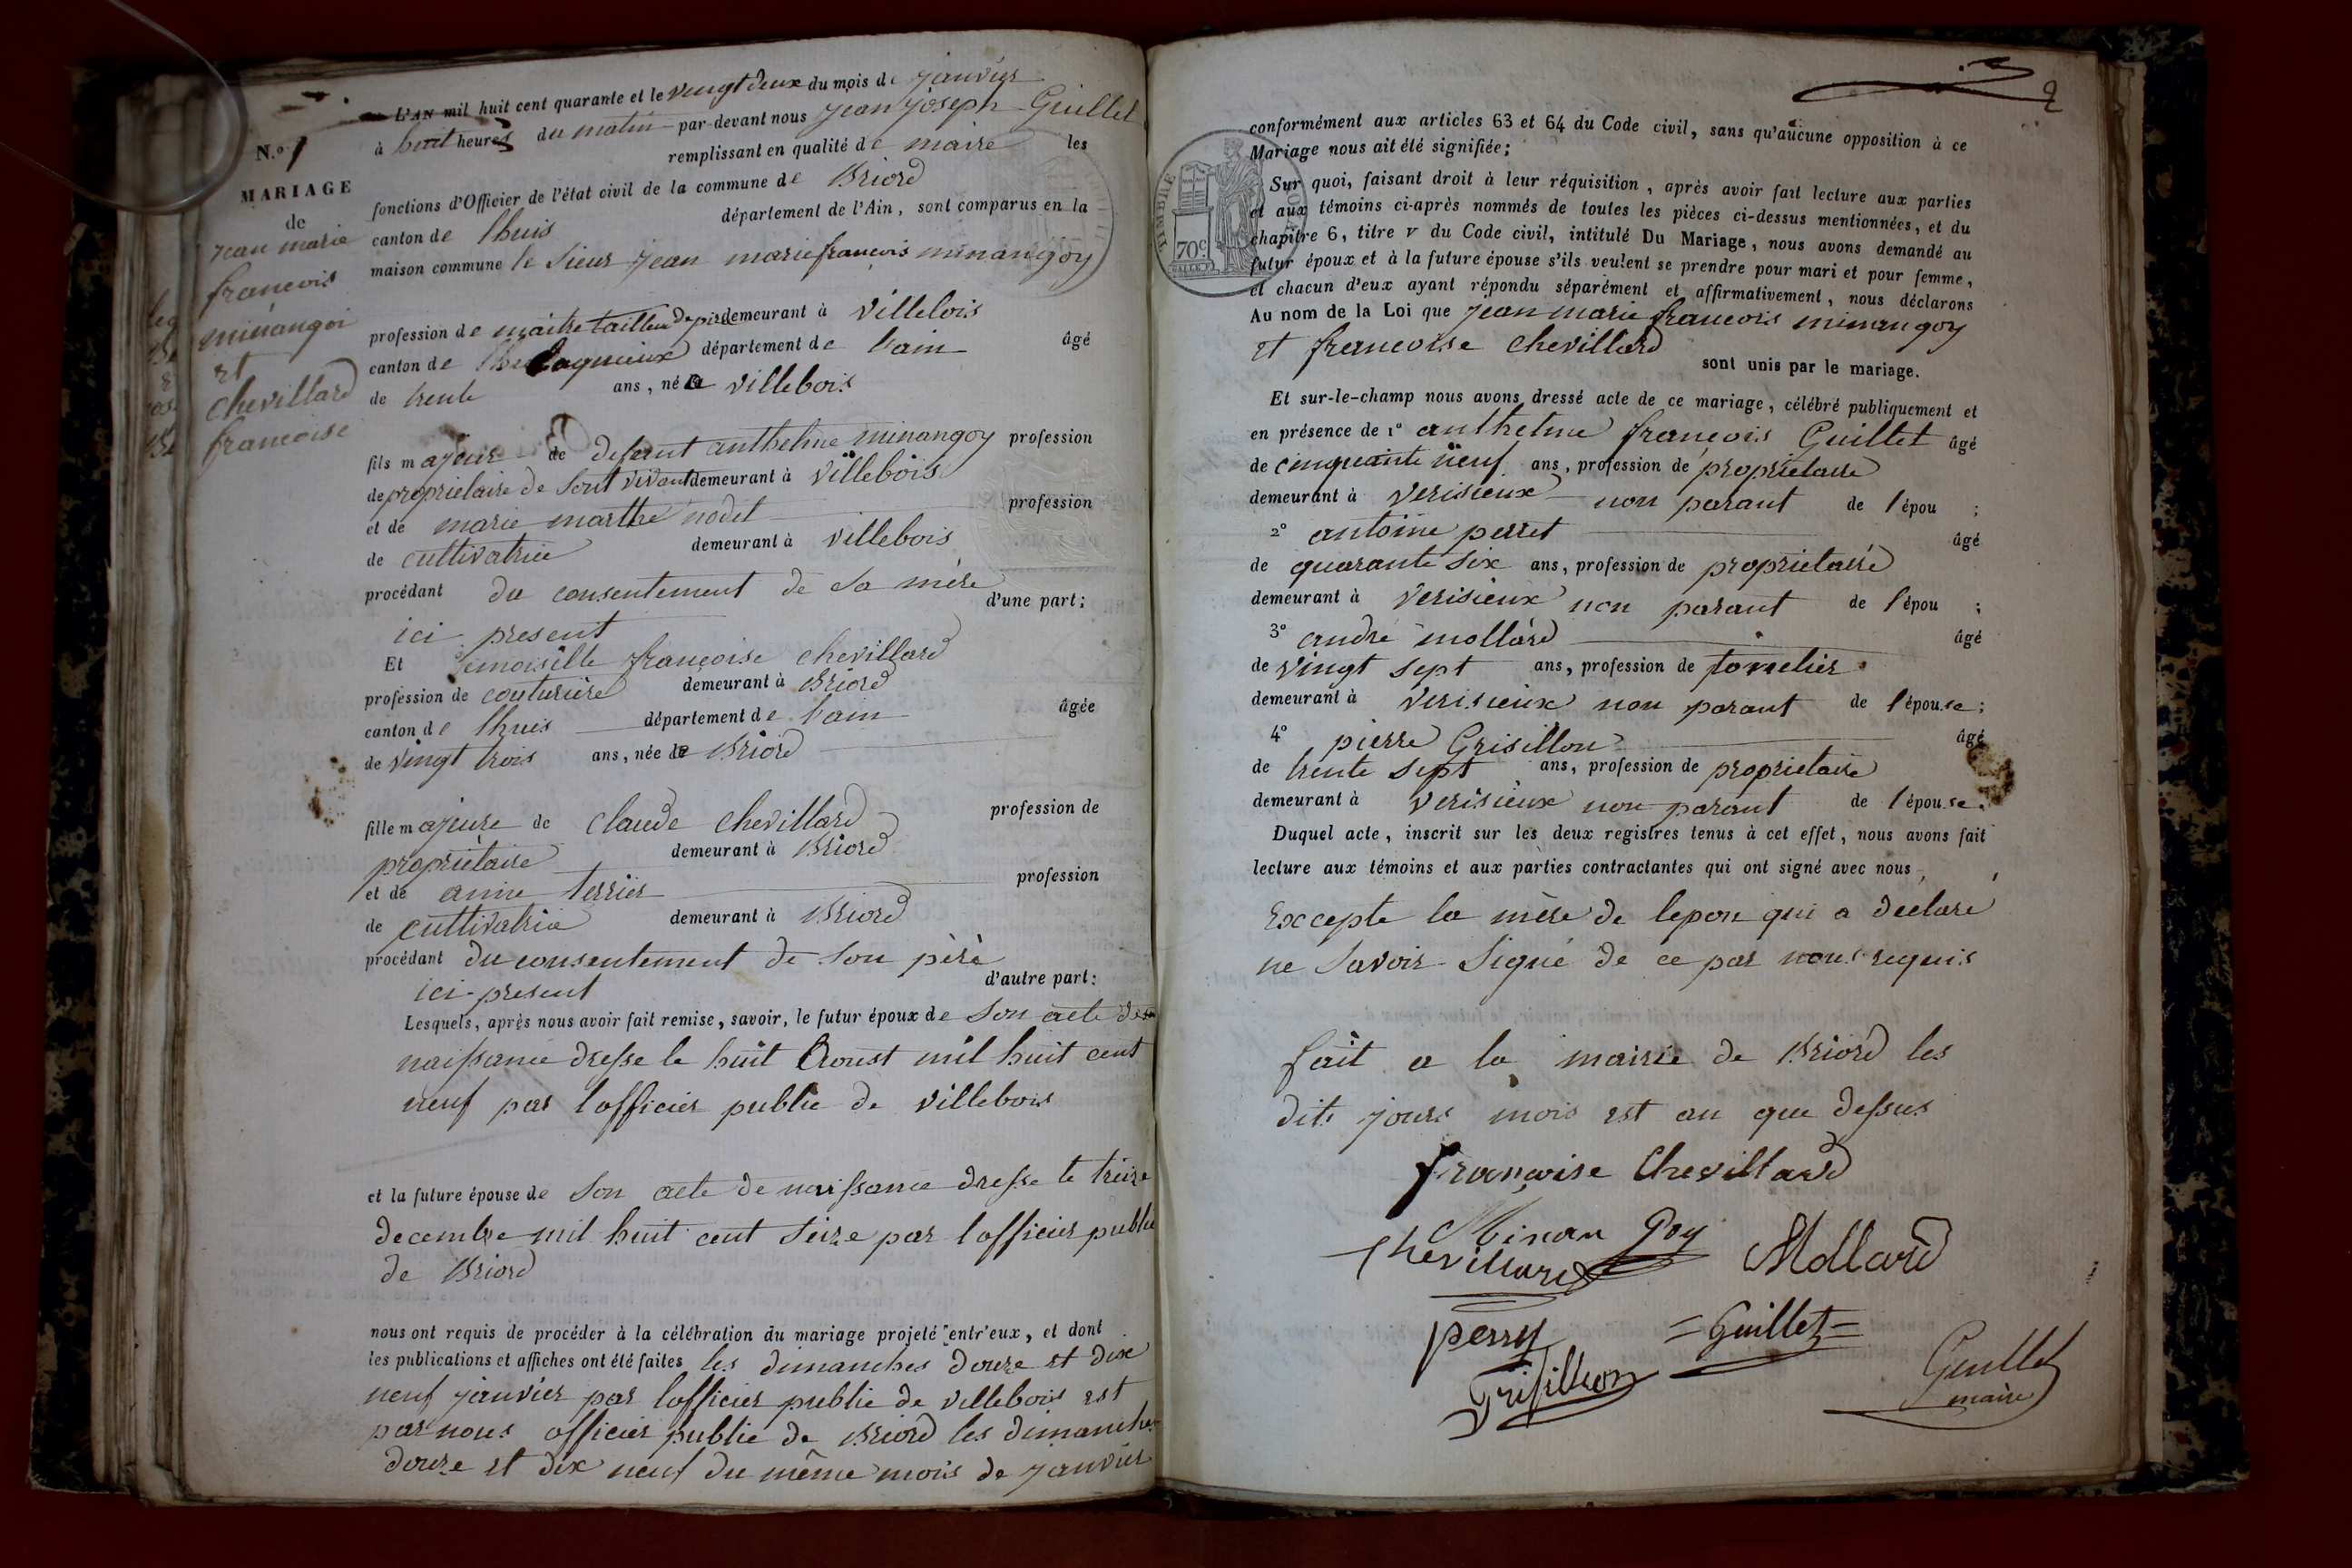 N.º 1
MARIAGE
de
jean marie
francois
minangoi
et
chevillard
francoise
L'AN mil huit cent quarante et le vingt deux du mois de janvier
à huit heures du matin par-devant nous jean joseph Guillet
remplissant en qualité de maire les
fonctions d'Officier de l'état civil de la commune de Briord
canton de lhuis département de l'Ain, sont comparus en la
maison commune le sieur jean marie francois minangoy
profession de maitre tailleur de pier demeurant à villebois
canton de lagnieux département de lain âgé
de trente ans, né a villebois
fils majeur de defunt anthelme minangoy profession
de proprietaire de sont vivant demeurant à villebois
et de marie marthe nodet profession
de cultivatrice demeurant à villebois
procédant du consentement de sa mère
d'une part;
ici present
Et demoiselle françoise chevillard
profession de couturière demeurant à Briord
canton de lhuis département de lain âgée
de vingt trois ans, née a Briord
fille majeure de claude chevillard profession de
propriètaire demeurant à Briord
et de anne terrier profession
de cultivatrice demeurant à Briord
procédant du consentement de son père
ici present d'autre part:
Lesquels, après nous avoir fait remise, savoir, le futur époux de son acte de
naissance dresse le huit Aoust mil huit cent
neuf par lofficier public de villebois
et la future épouse de son acte de naissance dresse le treize
decembre mil huit cent seize par lofficier public
de Briord
nous ont requis de procéder à la célébration du mariage projeté entr'eux, et dont
les publications et affiches ont été faites les dimanches douze et dix
neuf janvier par lofficier public de villebois est
par nous officier public de Briord les dimanches
douze et dix neuf du même mois de janvier
2
conformément aux articles 63 et 64 du Code civil, sans qu'aucune opposition à ce
Mariage nous ait été signifiée;
TIMBRE ROYAL
70c
Sur quoi, faisant droit à leur réquisition, après avoir fait lecture aux parties
et aux témoins ci-après nommés de toutes les pièces ci-dessus mentionnées, et du
chapitre 6, titre v du Code civil, intitulé Du Mariage, nous avons demandé au
futur époux et à la future épouse s'ils veulent se prendre pour mari et pour femme,
et chacun d'eux ayant répondu séparément et affirmativement, nous déclarons
Au nom de la Loi que jean marie francois minangoy
et francoise chevillard
sont unis par le mariage.
Et sur-le-champ nous avons dressé acte de ce mariage, célébré publiquement et
en présence de 1º anthelme francois Guillet âgé
de cinquante neuf ans, profession de proprietaire
demeurant à verisieux non parant de l'épou ;
2º antoine perret âgé
de quarante six ans, profession de proprietaire
demeurant à verisieux non parant de l'épou ;
3º andré mollard âgé
de vingt sept ans, profession de tonnelier
demeurant à verisieux non parant de l'épouse;
4º pierre Grisillon âgé
de trente sept ans, profession de proprietaire
demeurant à verisieux non parant de l'épouse.
Duquel acte, inscrit sur les deux registres tenus à cet effet, nous avons fait
lecture aux témoins et aux parties contractantes qui ont signé avec nous
Excepte la mère de lepou qui a declaré
ne savoir signé de ce par nous requis
fait a la mairie de Briord les
dits jours mois est an que dessus
françoise Chevillard
Minan Goy
chevillard
Mollard
perry
=Guillet=
Grisillion
Guillet
maire